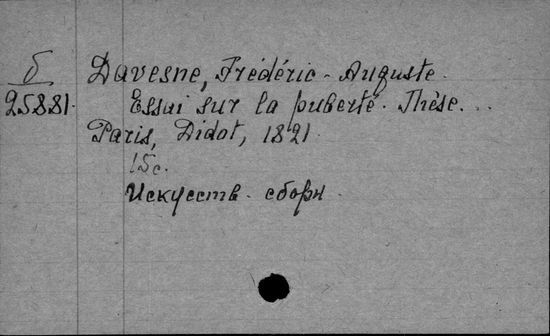 б
25881.
Davesne, Frédéric-Auguste.
Essai sur la puberté. Thèse...
Paris, Didot, 1821.
15 с.
Искусств. сборн.